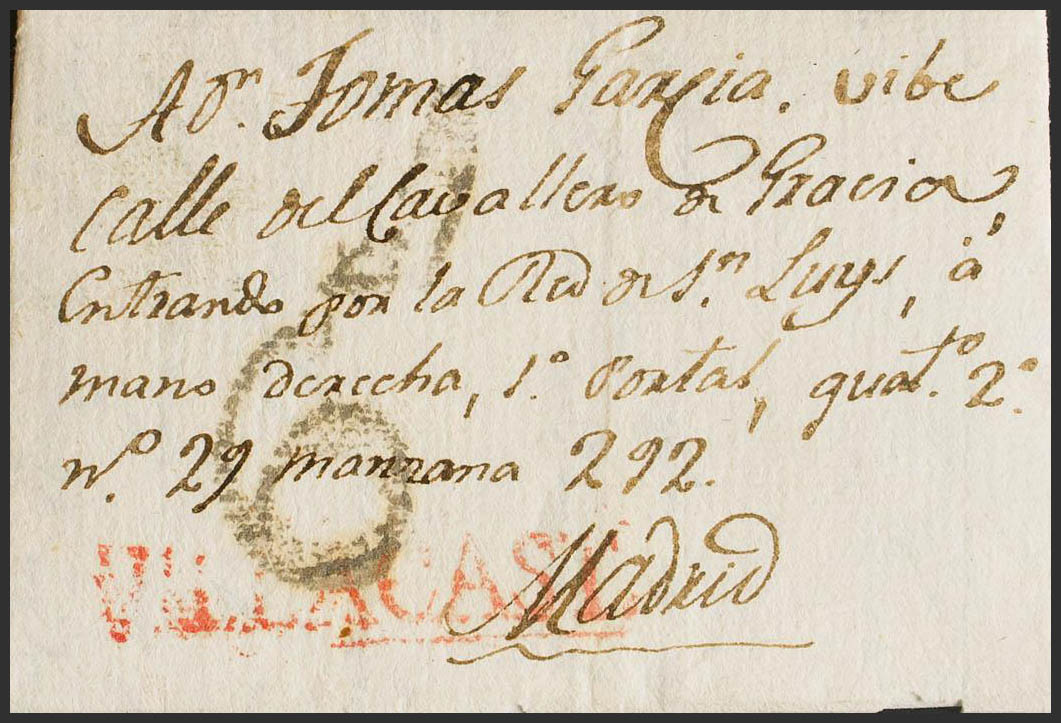 A Dn. Tomas Garcia. vibe
Calle del Cavallero de Gracia,
Entrando por la Red de Sn. Luys, à
mano derecha, 1.º Portal, quat.to 2.º
n.º 29 manzana 292.
Madrid
VILLACAST